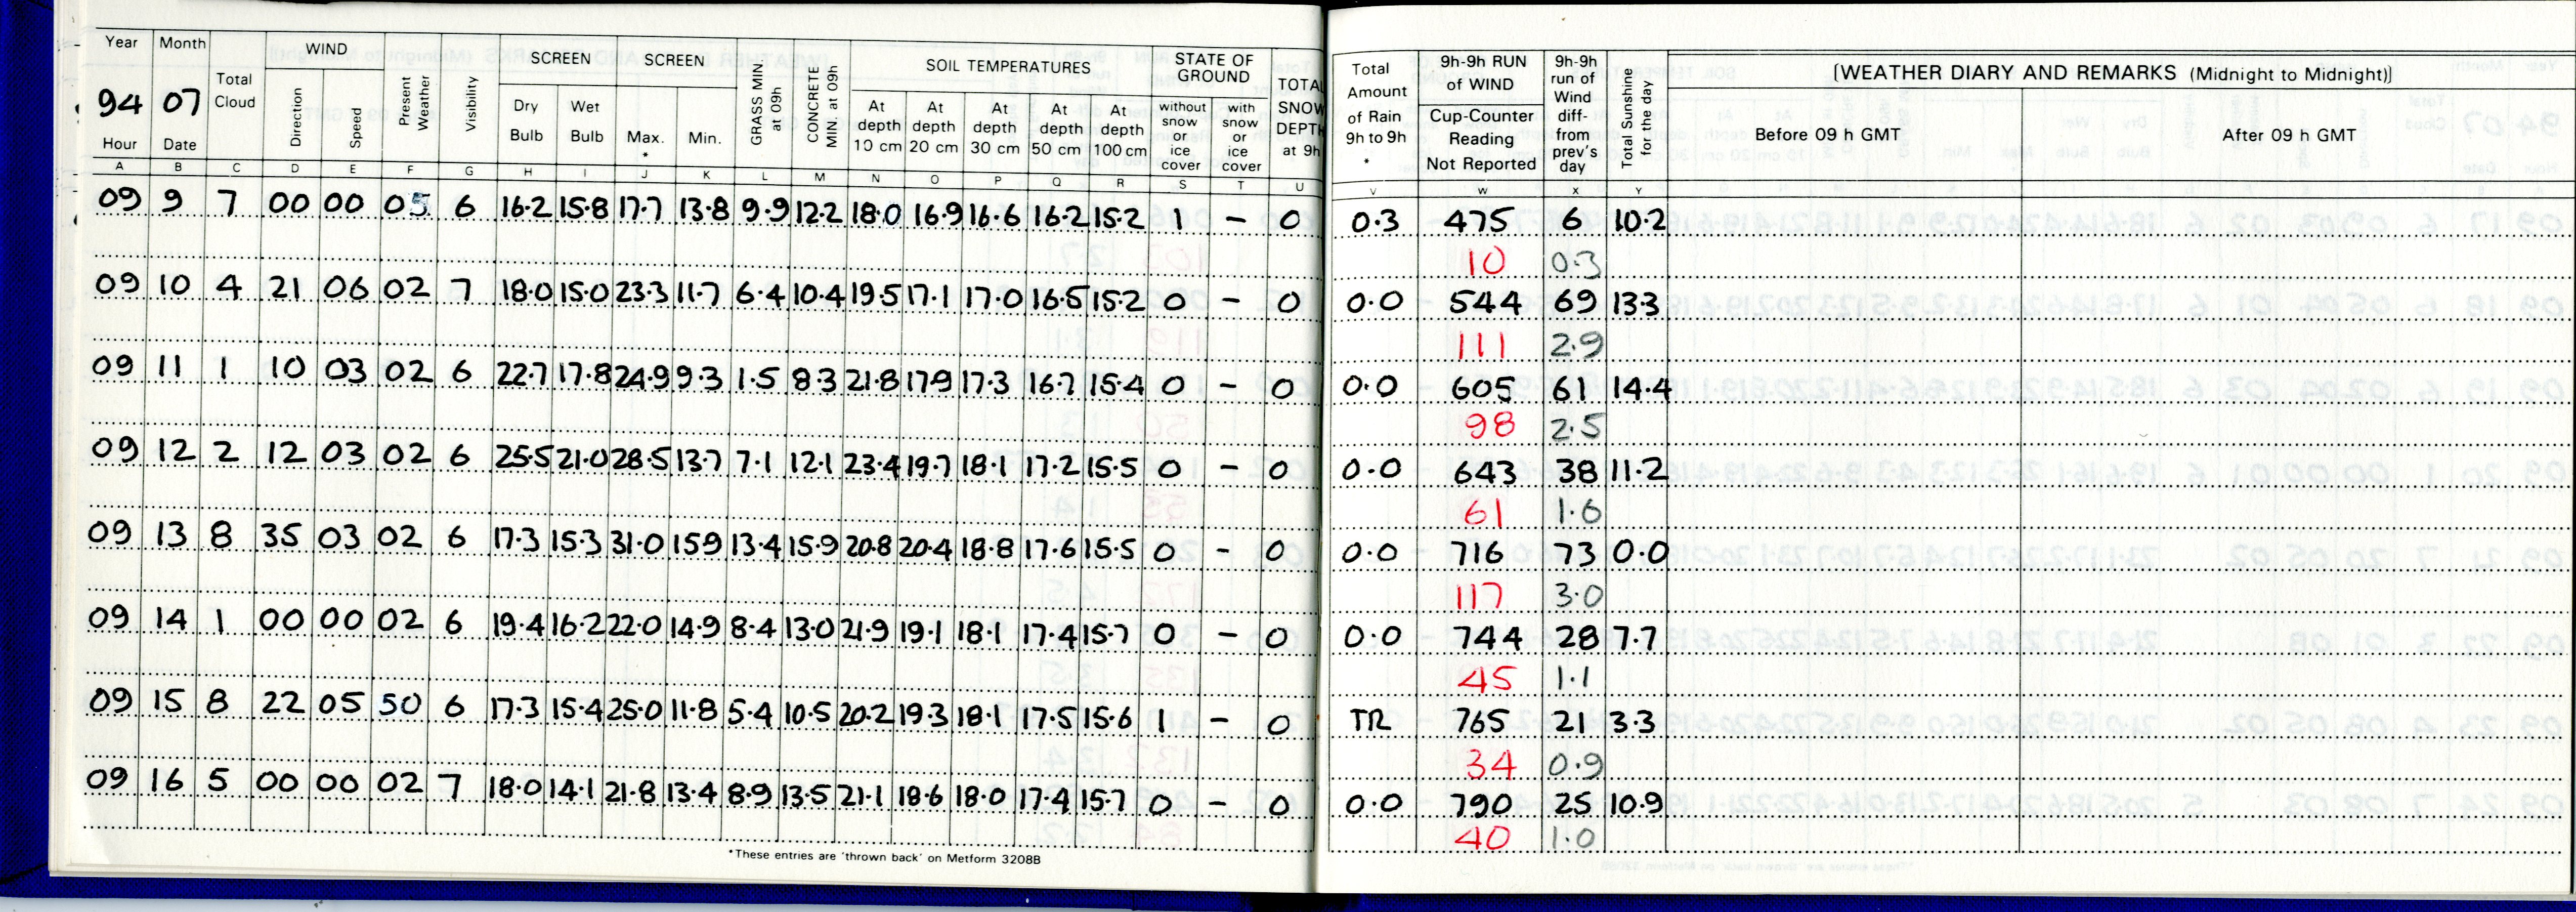 Year Month WIND Present Weather Visibility SCREEN SCREEN GRASS MIN. at 09h CONCRETE MIN. at 09h SOIL TEMPERATURES STATE OF GROUND TOTAL SNOW DEPTH at 9h
94 07 Total Cloud Direction Speed Dry Bulb Wet Bulb Max. * Min. At depth 10 cm At depth 20 cm At depth 30 cm At depth 50 cm At depth 100 cm without snow or ice cover with snow or ice cover
Hour Date
A B C D E F G H I J K L M N O P Q R S T U
09 9 7 00 00 05 6 16.2 15.8 17.7 13.8 9.9 12.2 18.0 16.9 16.6 16.2 15.2 1 – 0
09 10 4 21 06 02 7 18.0 15.0 23.3 11.7 6.4 10.4 19.5 17.1 17.0 16.5 15.2 0 – 0
09 11 1 10 03 02 6 22.7 17.8 24.9 9.3 1.5 8.3 21.8 17.9 17.3 16.7 15.4 0 – 0
09 12 2 12 03 02 6 25.5 21.0 28.5 13.7 7.1 12.1 23.4 19.7 18.1 17.2 15.5 0 – 0
09 13 8 35 03 02 6 17.3 15.3 31.0 15.9 13.4 15.9 20.8 20.4 18.8 17.6 15.5 0 – 0
09 14 1 00 00 02 6 19.4 16.2 22.0 14.9 8.4 13.0 21.9 19.1 18.1 17.4 15.7 0 – 0
09 15 8 22 05 50 6 17.3 15.4 25.0 11.8 5.4 10.5 20.2 19.3 18.1 17.5 15.6 1 – 0
09 16 5 00 00 02 7 18.0 14.1 21.8 13.4 8.9 13.5 21.1 18.6 18.0 17.4 15.7 0 – 0
*These entries are 'thrown back' on Metform 3208B
Total Amount of Rain 9h to 9h * 9h-9h RUN of WIND Cup-Counter Reading Not Reported 9h-9h run of Wind diff- from prev's day Total Sunshine for the day [WEATHER DIARY AND REMARKS (Midnight to Midnight)]
Before 09 h GMT After 09 h GMT
V W X Y
0.3 475 6 10.2
10 0.3
0.0 544 69 13.3
111 2.9
0.0 605 61 14.4
98 2.5
0.0 643 38 11.2
61 1.6
0.0 716 73 0.0
117 3.0
0.0 744 28 7.7
45 1.1
TR 765 21 3.3
34 0.9
0.0 790 25 10.9
40 1.0